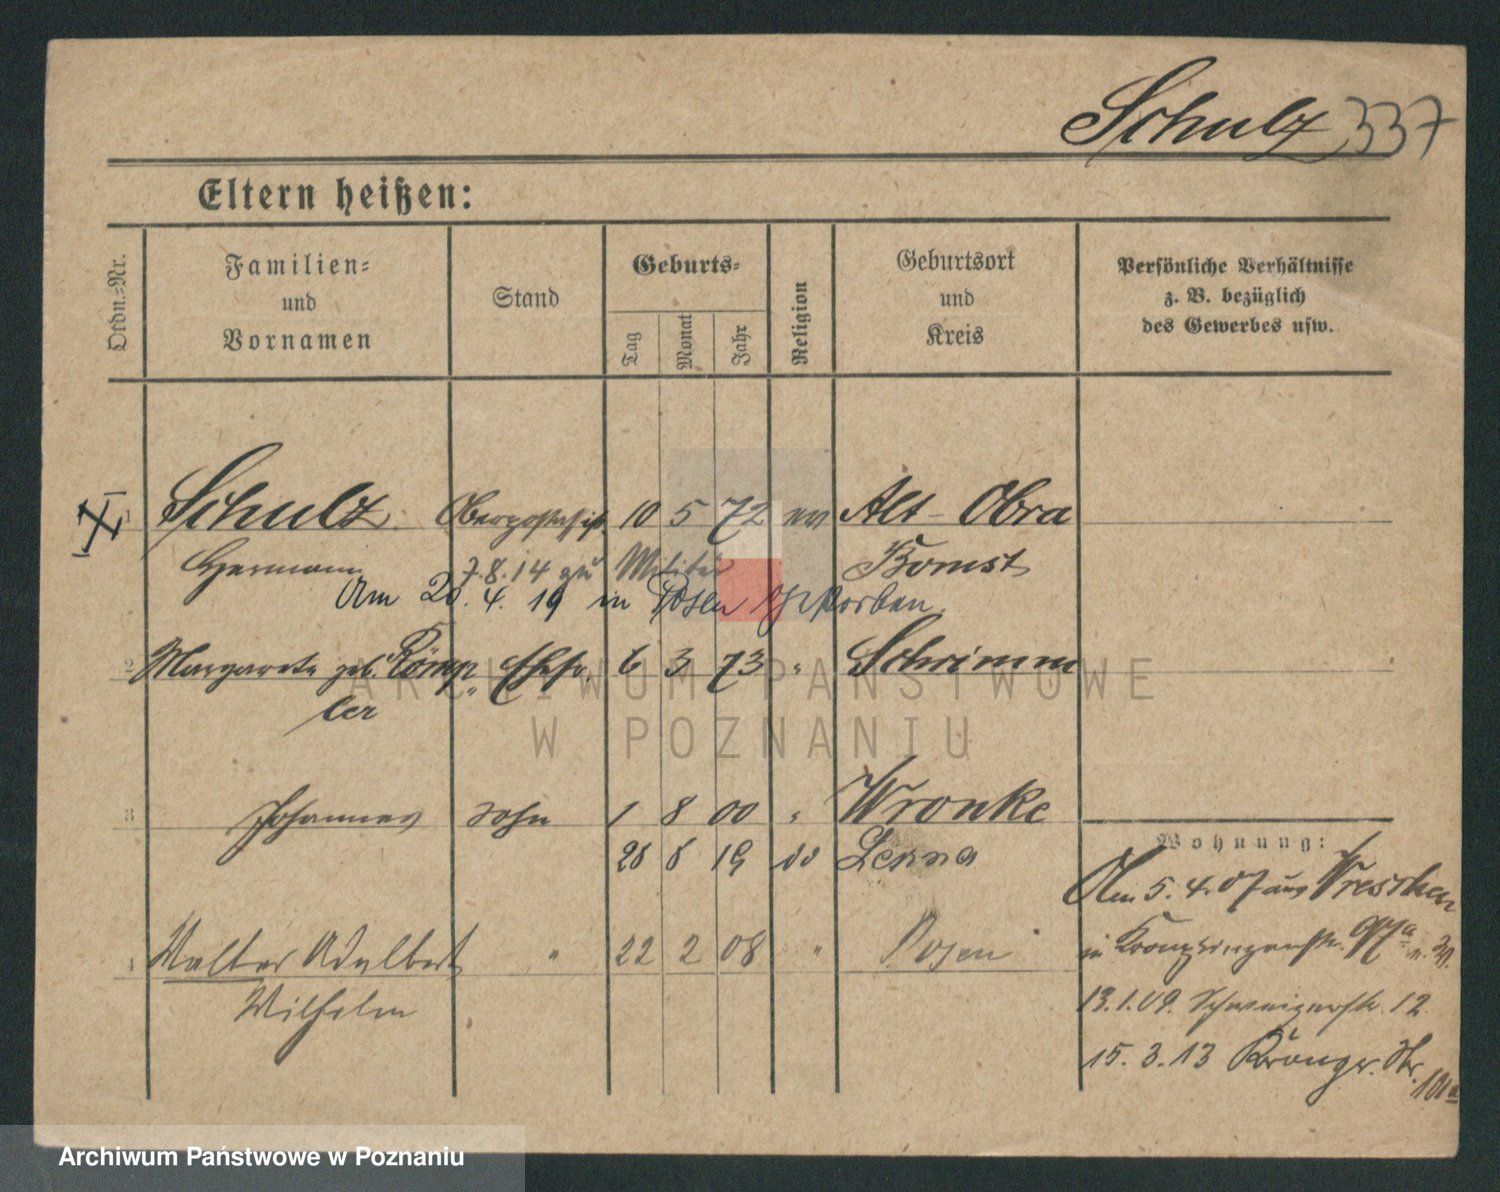 Schulz 337
Eltern heißen:
Ordn.=Nr.
Familien=
und
Vornamen
Stand
Geburts=
Tag
Monat
Jahr
Religion
Geburtsort
und
Kreis
Persönliche Verhältnisse
z. B. bezüglich
des Gewerbes usw.
1 Schulz 10 5 72 ev Alt-Obra
Hermann 7.8.14 zu Militär Bomst
Am 20. 4. 19 in Posen verstorben.
2 Margarete geb. Römp= Ehefr. 6 3 73 " Schrimm
ler
3 Johannes Sohn 1 8 00 " Wronke
28 8 19 do
Wohnung:
Am 5. 4. 07 aus Wreschen
in Kronprinzenstr. 97a
4 Walter Adalbert " 22 2 08 " Posen
Wilhelm
13.1.09. 12
15. 3. 13 Kronpr. Str.
101a
ARCHIWUM PAŃSTWOWE
W POZNANIU
Archiwum Państwowe w Poznaniu